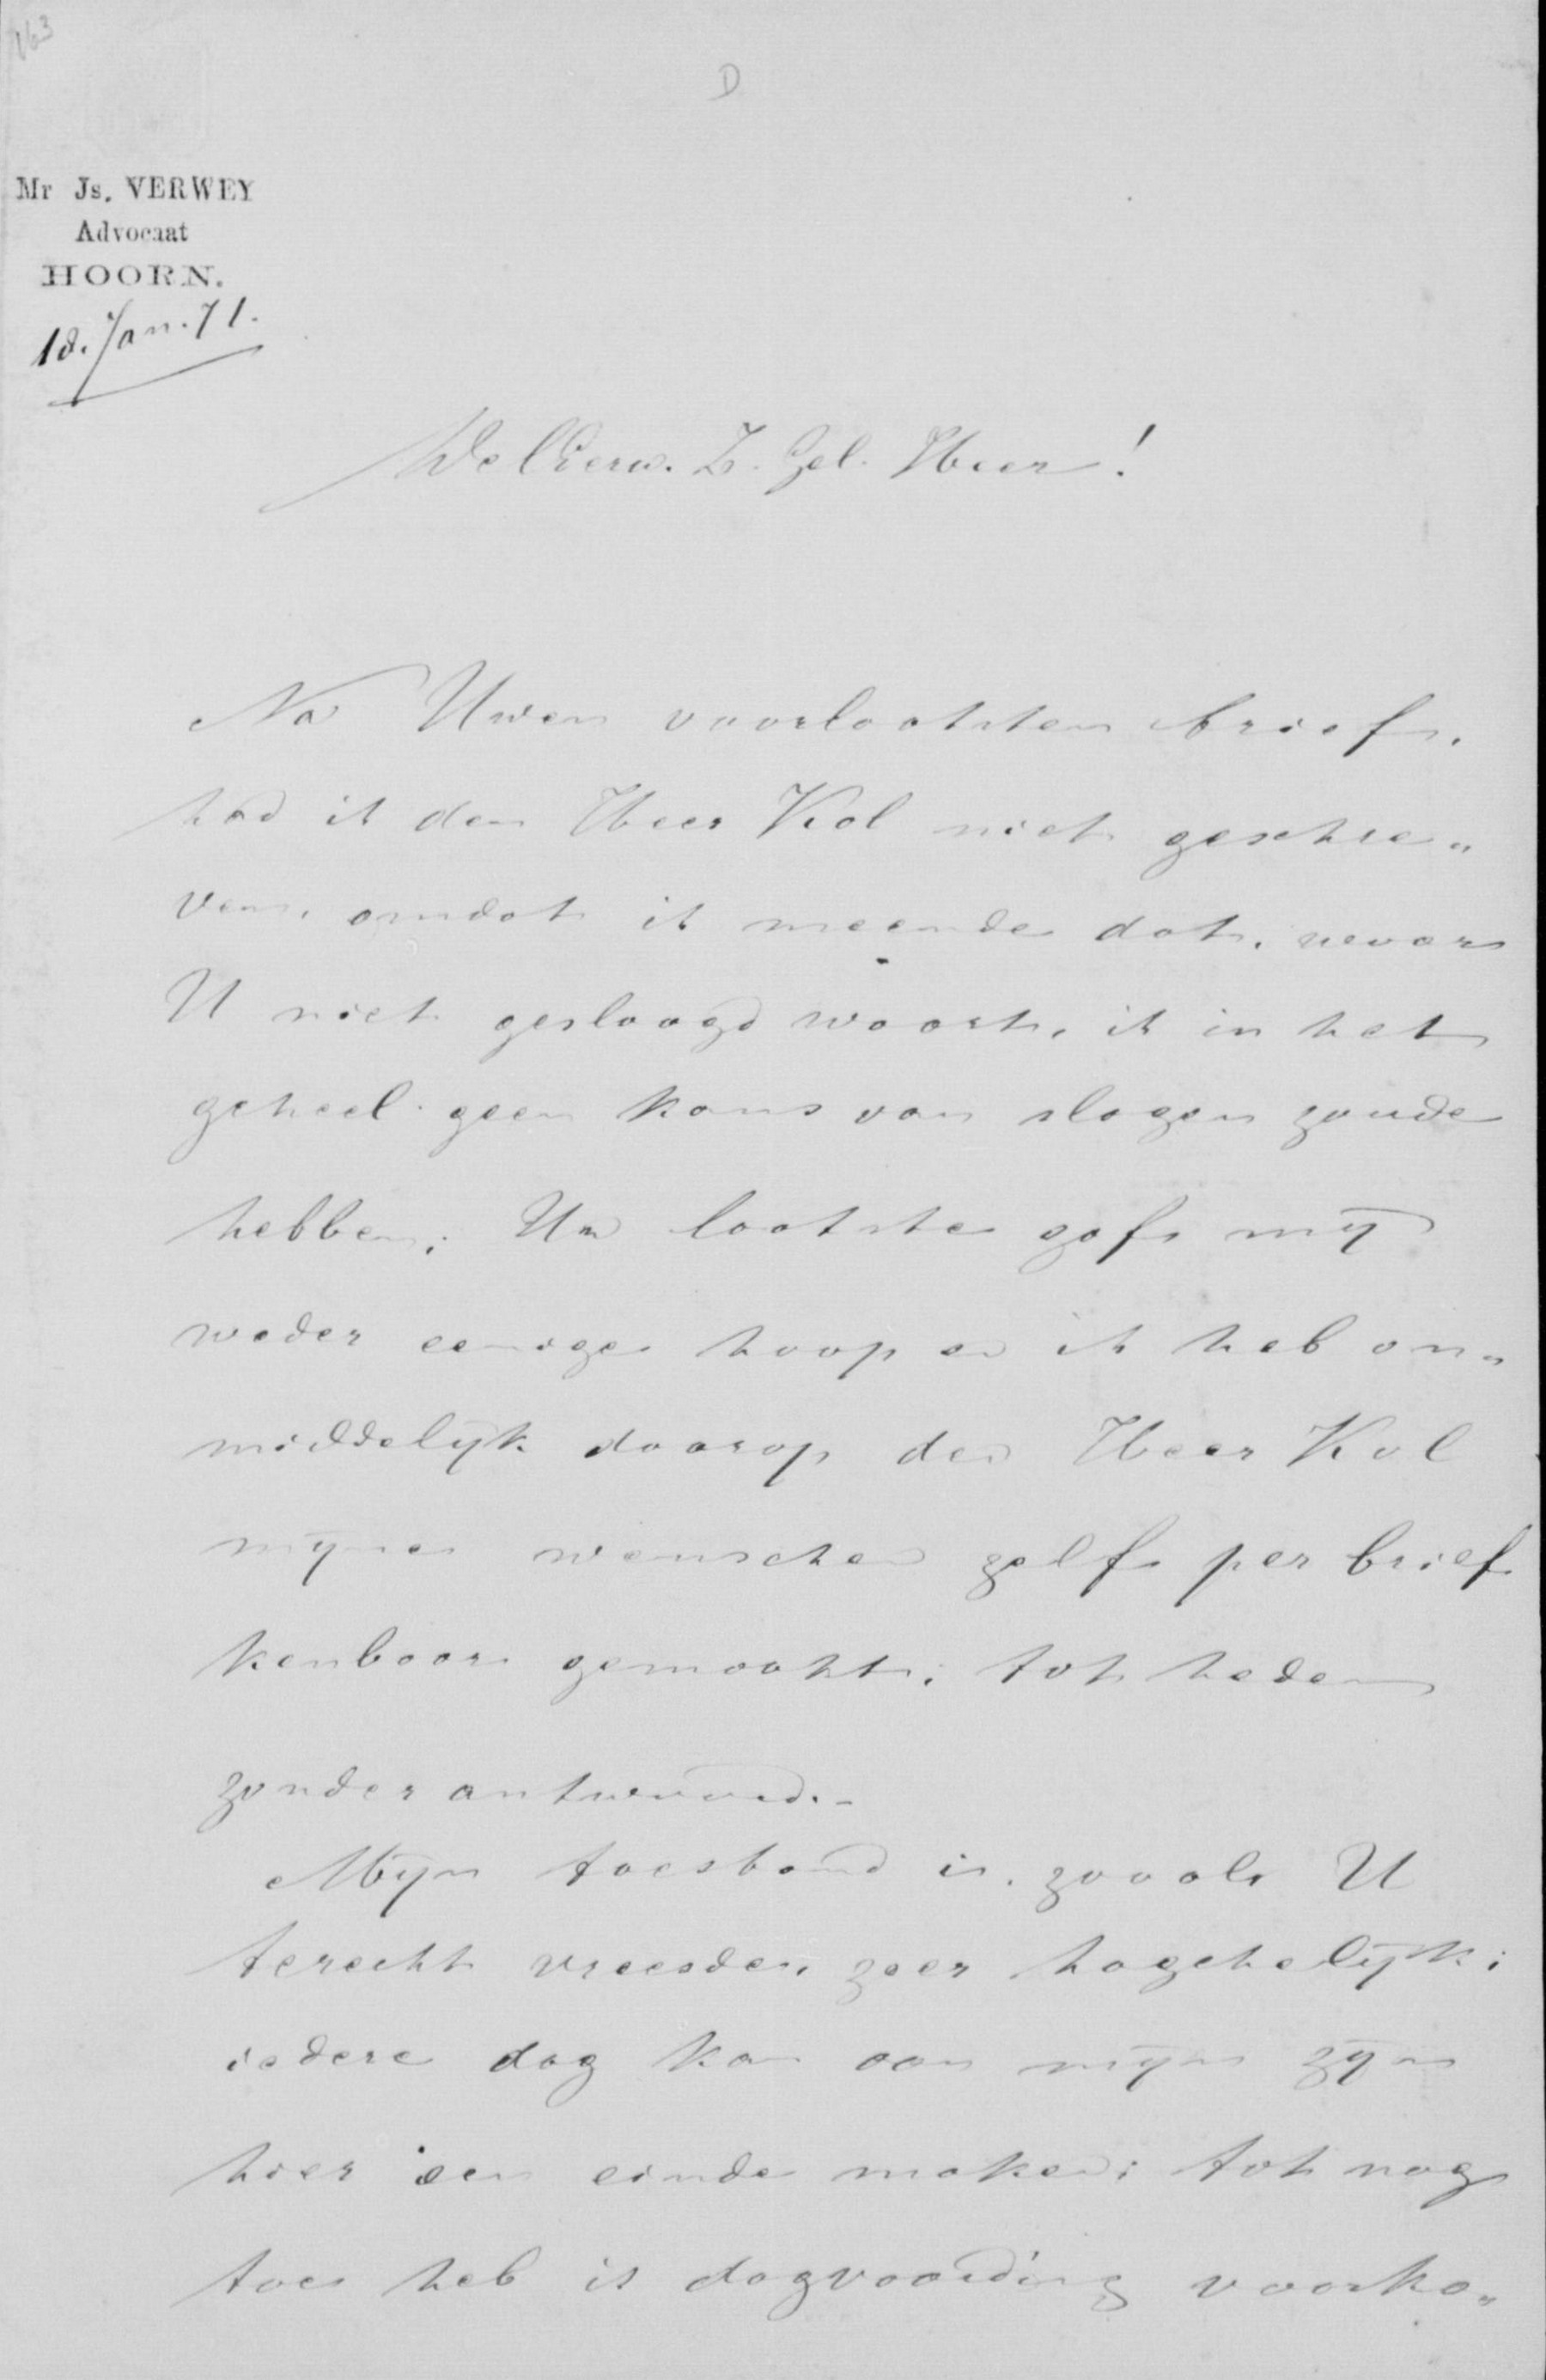 163
D
Mr Js. VERWEY
Advocaat
HOORN.
18. Jan. 71.
WelEerw. Z. Gel. Heer!
Na Uwen voorlaatsten brief,
had ik den Heer Kol niet geschre„
ven, omdat ik meende dat,
U niet geslaagd waart, ik in het
geheel geen kans van slagen zoude
hebben; Uw laatste gaf mij
weder eenige hoop en ik heb on„
middelijk daarop den Heer Kol
mijne wenschen zelf per brief
kenbaar gemaakt; tot heden
zonder antwoord.-
Mijn toestand is, zooals U
terecht vreesde, zeer hagchelijk;
iedere dag kan aan mijn zijn
hier een einde maken; tot nog
toe heb ik dagvaarding voorko„